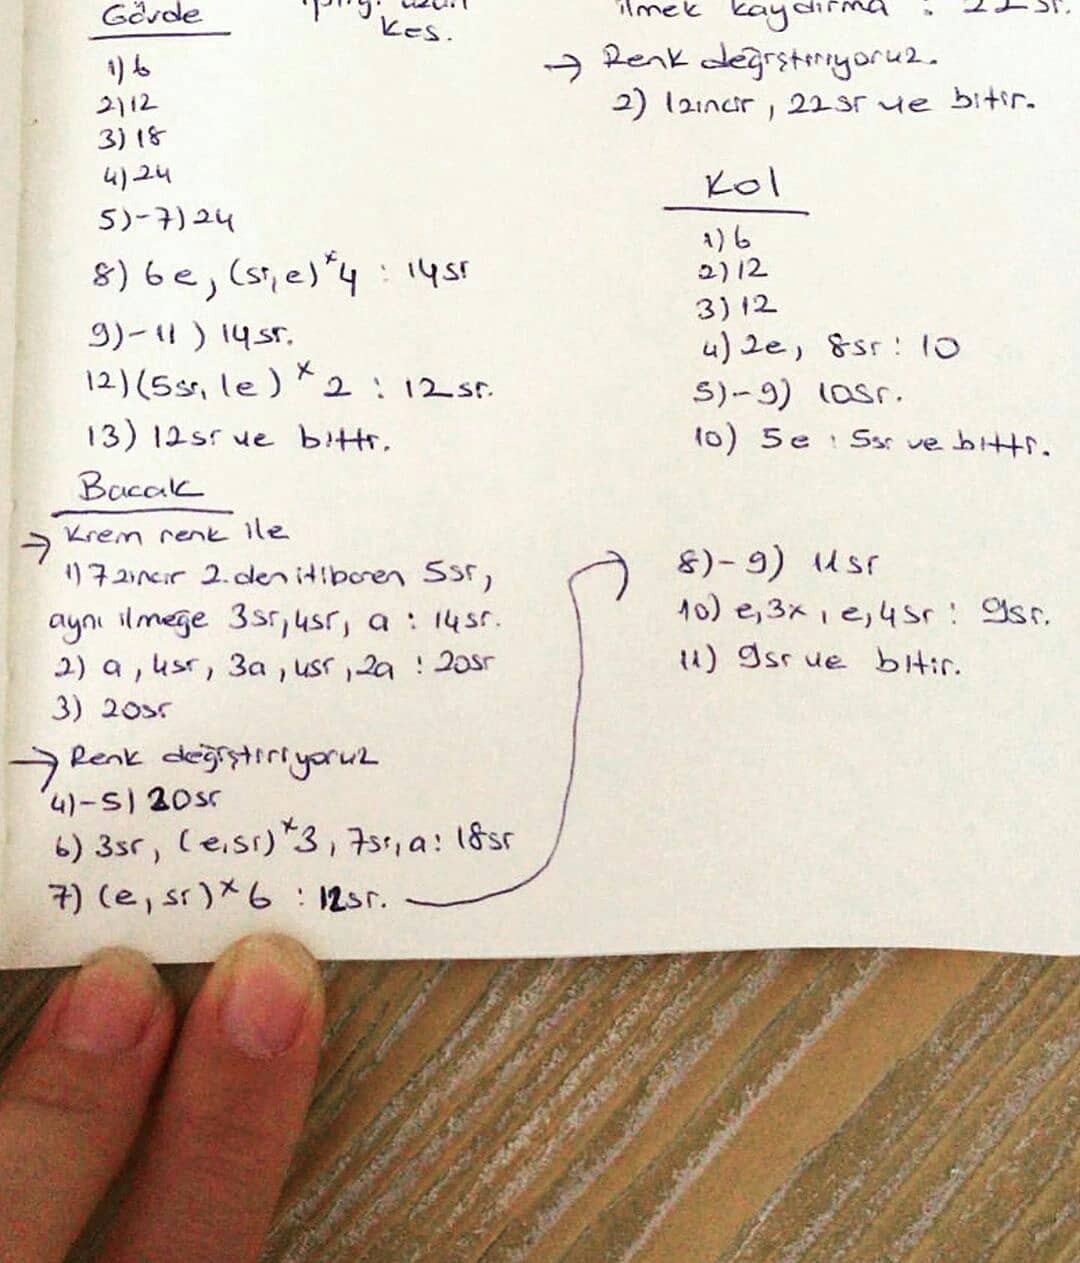 Gövde
1) 6
2) 12
3) 18
4) 24
5)-7) 24
8) 6e, (sr, e)*4 : 14sr
9)-11) 14sr.
12) (5sr, 1e)*2 : 12sr.
13) 12sr ve bitir.
Bacak
→ Krem renk ile
1) 7 zincir 2.den itibaren 5sr,
aynı ilmeğe 3sr, 4sr, a : 14sr.
2) a, 4sr, 3a, 4sr, 2a : 20sr
3) 20sr
→ Renk değiştiriyoruz
4)-5) 20sr
6) 3sr, (e, sr)*3, 7sr, a : 18sr
7) (e, sr)*6 : 12sr.
kes.
ilmek kaydırma : 22 sr.
→ Renk değiştiriyoruz.
2) 1zincir, 22sr ve bitir.
Kol
1) 6
2) 12
3) 12
4) 2e, 8sr : 10
5)-9) 10sr.
10) 5e : 5sr ve bitir.
→ 8)-9) 11sr
10) e, 3x, e, 4sr : 9sr.
11) 9sr ve bitir.